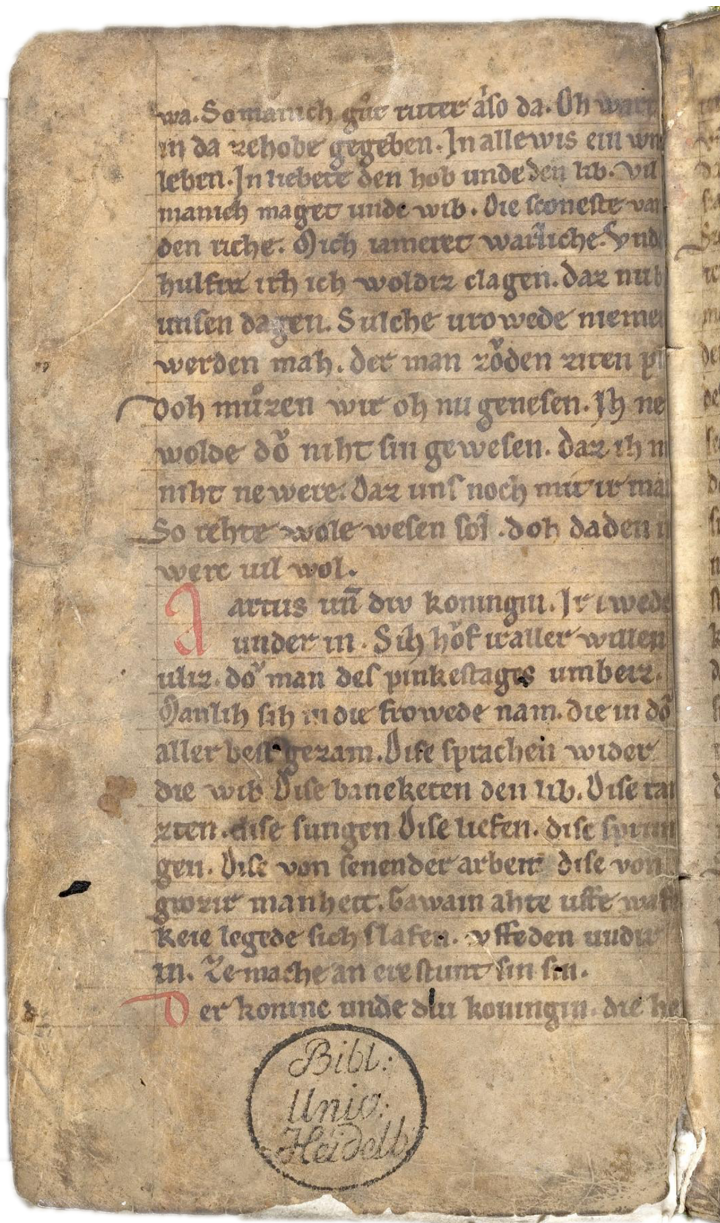 wa. So manich gůt ritter also da. Oh wart
in da zehobe gegeben. In allewis ein wn
leben. In liebete den hob unde den lib. vil
manich maget unde wib. Die sconeste van
den riche. Mich iameret warliche. Vnde
hulfiz ith ich woldiz clagen. daz nu b
unsen dagen. Sulche urowede niemer
werden mah. der man zoͮden ziten pl
Doh muͦzen wir oh nu genesen. Ih ne
wolde doͮ niht sin gewesen. daz ih n
niht ne were. Daz uns noch mit ir ma
So rehte wole wesen sol. doh daden i
werc uil wol.
Artus uñ div koningin. Ir iwede
under in. Sih hoͮf ir aller willen
uliz. doͮ man des pinkestages umbeiz.
Manlih sih in die frowede nam. die in doͮ
aller best gezam. Dise sprachen wider
die wib Dise baneketen den lib. Dise tan
zten. dise sungen Dise liefen. dise sprun
gen. Dise von senender arbeit dise von
grozir manheit. Gawain ahte uffe waf
Keie legede sich slafen. vffeden undir
in. Ze mache an ere stunt sin sin.
Der koninc unde diu koningin. die he
Bibl:
Univ:
Heidelb